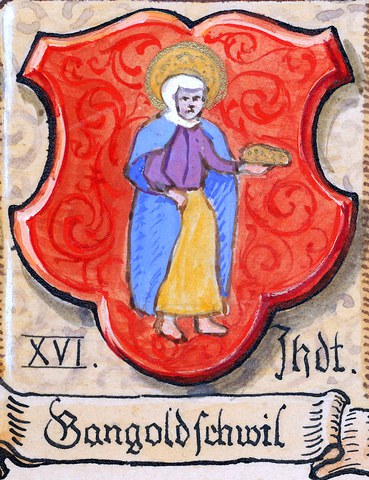 XVI. Jhdt.
Gangoldſchwil